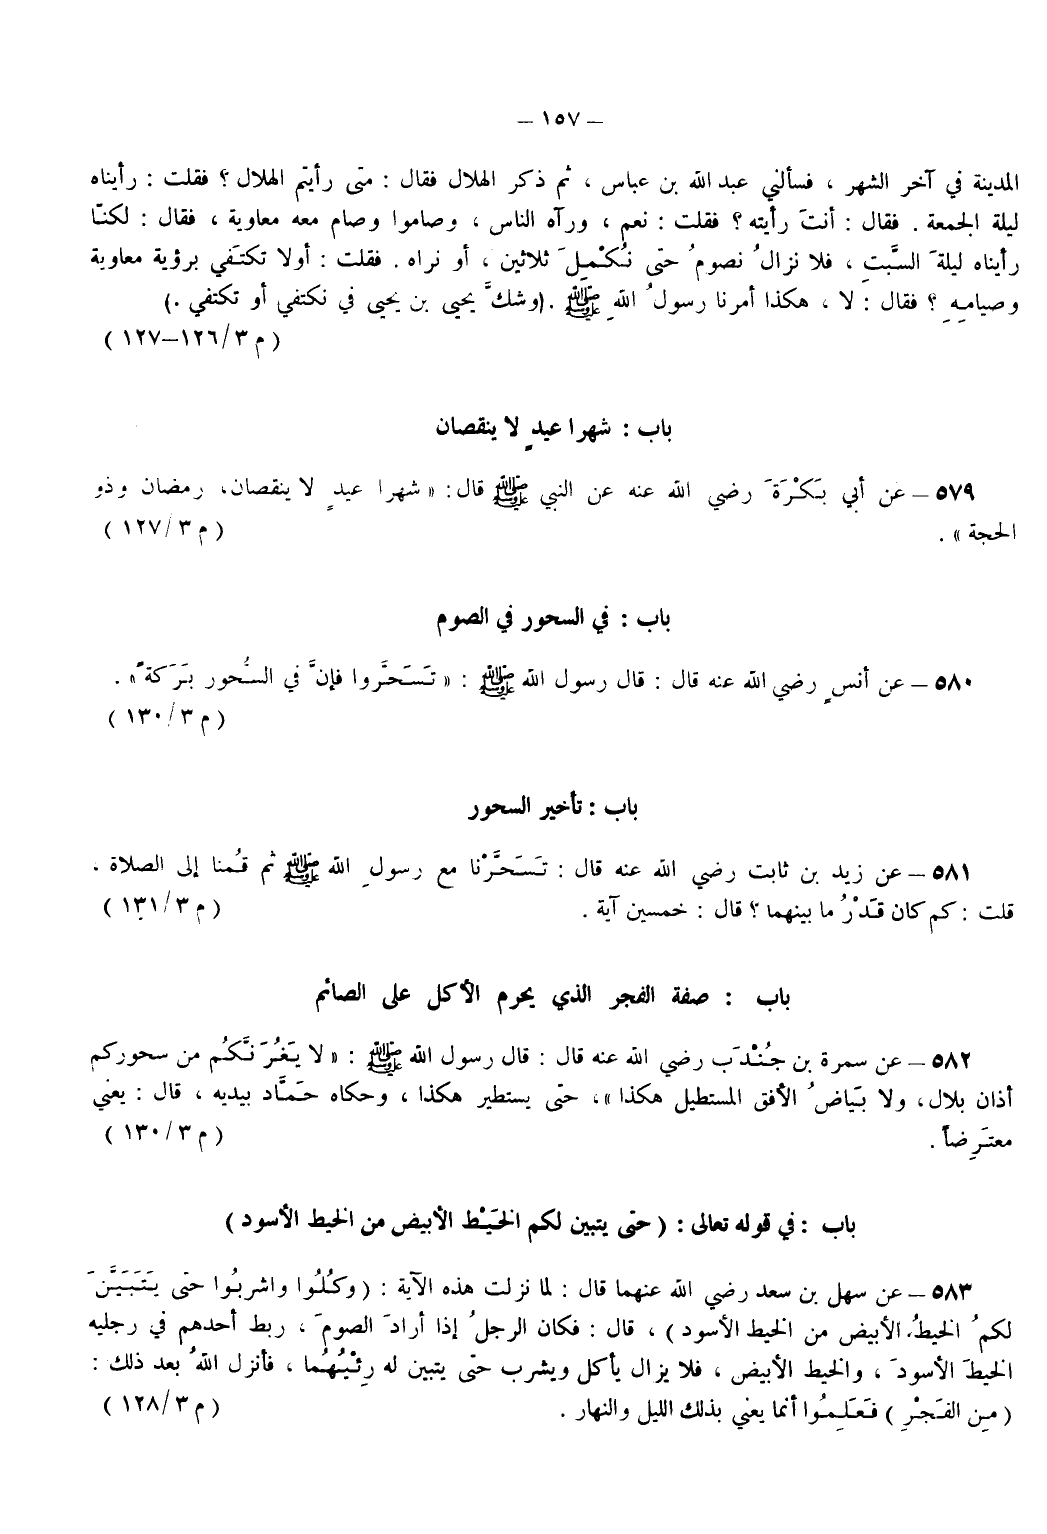 – ١٥٧ –
المدينة في آخر الشهر ، فسألني عبد الله بن عباس ، ثم ذكر الهلال فقال : متى رأيتم الهلال ؟ فقلت : رأيناه
ليلة الجمعة . فقال : أنتَ رأيته ؟ فقلت : نعم ، ورآه الناس ، وصاموا وصام معه معاوية ، فقال : لكنّا
رأيناه ليلةَ السَّبتِ ، فلا نزالُ نصومُ حتى نُكْمِلَ ثلاثين ، أو نراه . فقلت : أولا تكتَفي برؤية معاوية
وصيامِهِ ؟ فقال : لا ، هكذا أمرنا رسولُ اللهِ ﷺ . (وشكَّ يحيى بن يحيى في نكتفي أو تكتفي .)
( م ٣/١٢٦–١٢٧ )
باب : شهرا عيدٍ لا ينقصان
٥٧٩ – عن أبي بَكْرَةَ رضي الله عنه عن النبي ﷺ قال : « شهرا عيدٍ لا ينقصان ، رمضان وذو
الحجة » .
( م ٣/١٢٧ )
باب : في السحور في الصوم
٥٨٠ – عن أنسٍ رضي الله عنه قال : قال رسول الله ﷺ : « تَسَحَّروا فإنَّ في السُّحور بَرَكةً » .
( م ٣/١٣٠ )
باب : تأخير السحور
٥٨١ – عن زيد بن ثابت رضي الله عنه قال : تَسَحَّرْنا مع رسولِ الله ﷺ ثم قُمنا إلى الصلاة .
قلت : كم كان قَدْرُ ما بينهما ؟ قال : خمسين آية .
( م ٣/١٣١ )
باب : صفة الفجر الذي يحرم الأكل على الصائم
٥٨٢ – عن سمرة بن جُنْدَب رضي الله عنه قال : قال رسول الله ﷺ : « لا يَغُرَنَّكُم من سحوركم
أذان بلال ، ولا بَيَاضُ الأفق المستطيل هكذا » ، حتى يستطير هكذا ، وحكاه حَمَّاد بيديه ، قال : يعني
معترَِضاً .
( م ٣/١٣٠ )
باب : في قوله تعالى : ( حتى يتبين لكم الخَيْط الأبيض من الخيط الأسود )
٥٨٣ – عن سهل بن سعد رضي الله عنهما قال : لما نزلت هذه الآية : ( وكُلُوا واشربُوا حتى يَتَبَيَّنَ
لكمُ الخيطُ الأبيض من الخيط الأسود ) ، قال : فكان الرجلُ إذا أرادَ الصومَ ، ربط أحدهم في رجليه
الخيطَ الأسودَ ، والخيط الأبيض ، فلا يزال يأكل ويشرب حتى يتبين له رِئْيُهُما ، فأنزل اللهُ بعد ذلك :
( مِن الفَجْرِ ) فَعَلِمُوا أنما يعني بذلك الليل والنهار .
( م ٣/١٢٨ )